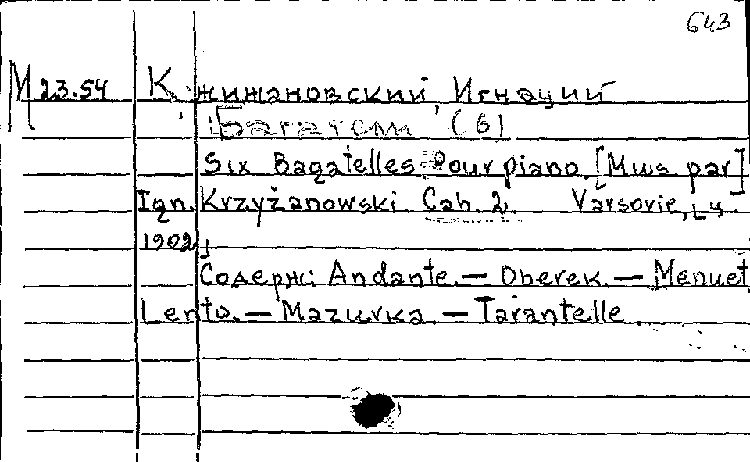 643
M 23.54 Кжижановский, Игнаций
Багатели (6)
Six Bagatelles pour piano [Mus. par]
Ign. Krzyżanowski Cah. 2. Varsovie,
1902
Содерж: Andante. — Oberek. — Menuet
Lento. — Mazurka — Tarantelle.